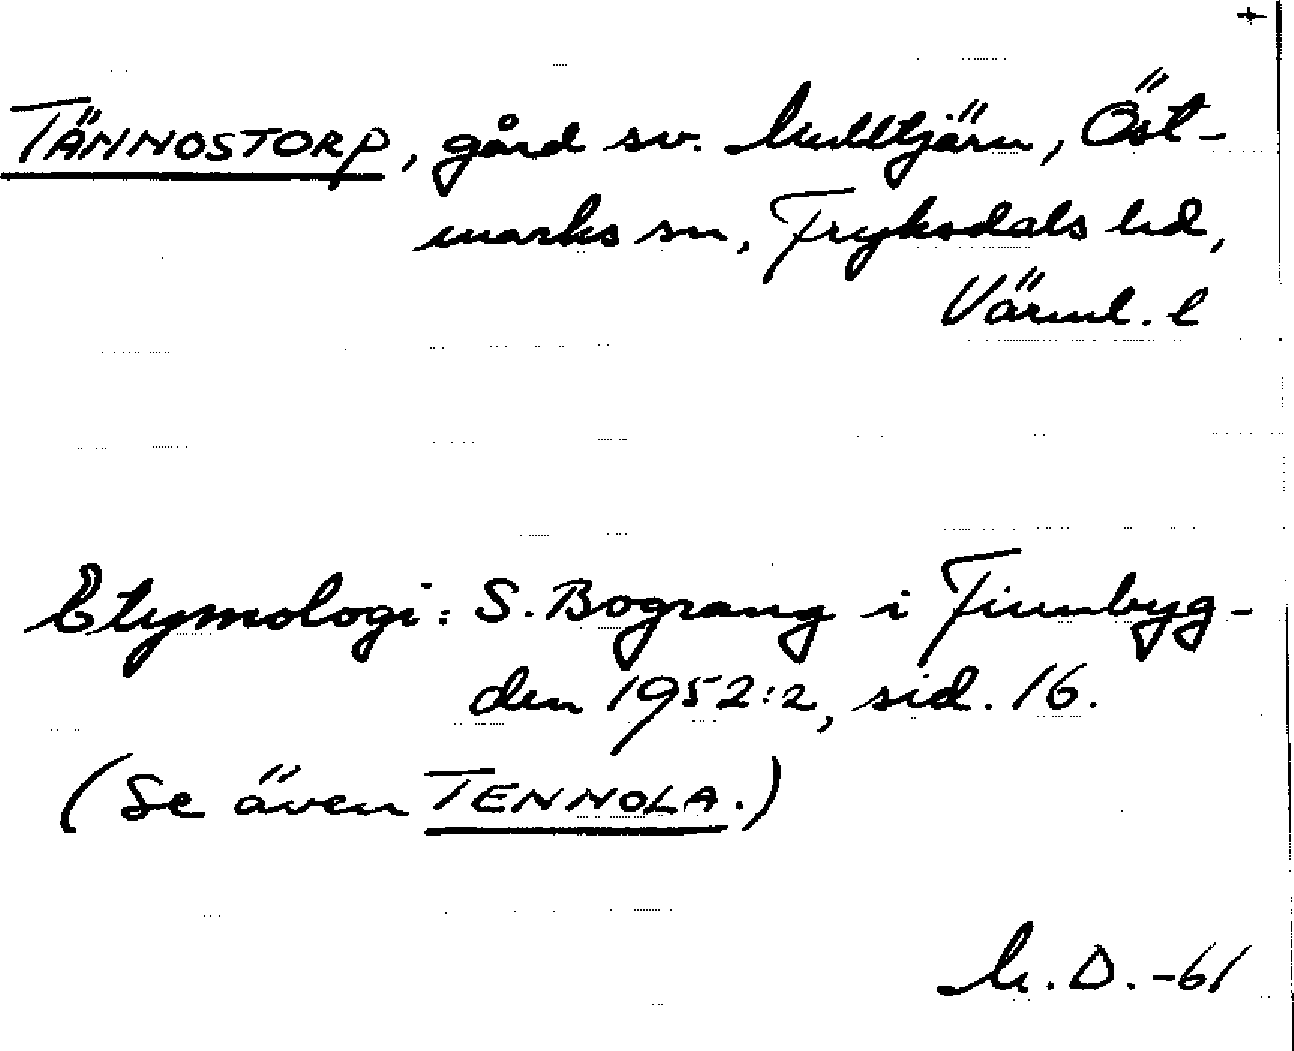 +
TÄNNOSTORP, gård sv. Mulltjärn, Öst-
marks sn, Fryksdals hd,
Värml. l
Etymologi: S. Bograng i Finnbyg-
den 1952:2, sid. 16.
(Se även TENNOLA.)
M. D. -61